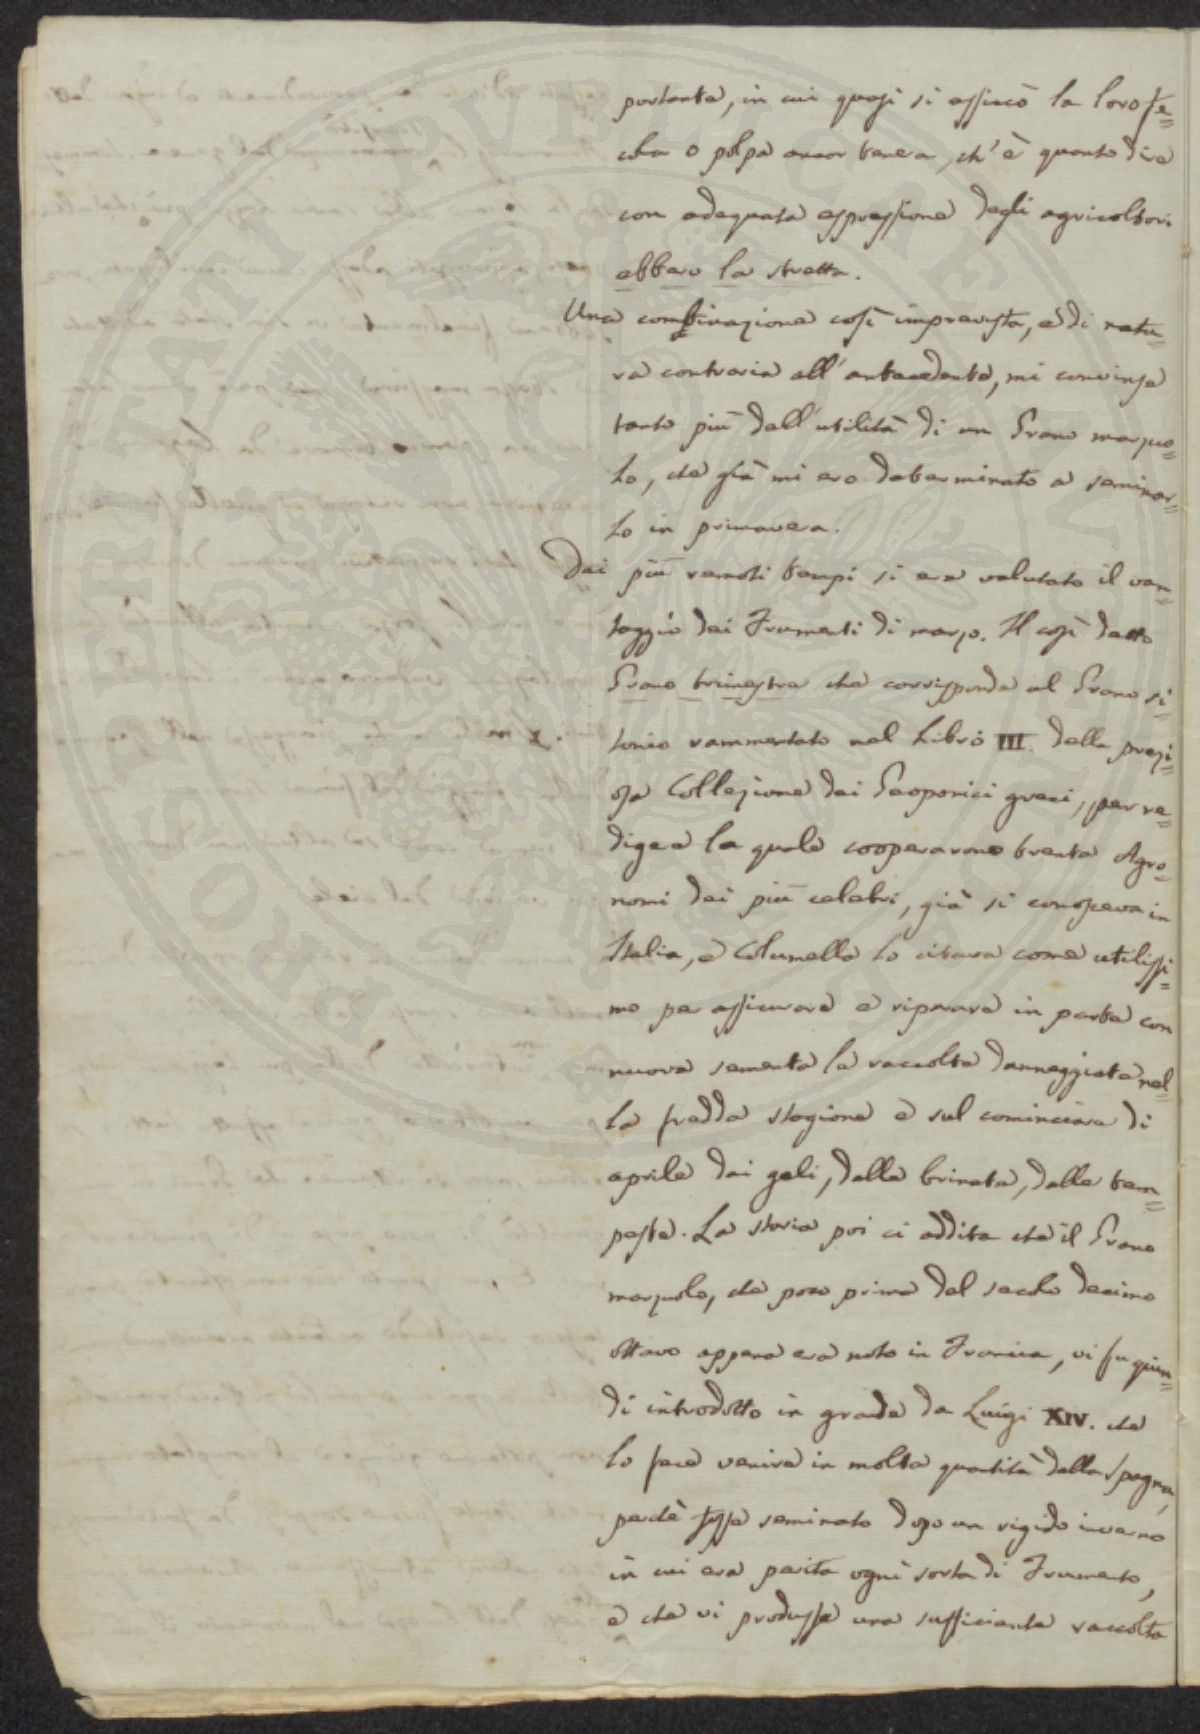 portanta, in cui quasi si assiccò la loro fe=
cola o polpa ancor tenera, ch'è quanto dire
con adeguata espressione degli agricoltori
ebbero la stretta.
Una combinazione così imprevista, e di natu=
ra contraria all'antecedente, mi convinse
tanto più dell'utilità di un Grano marzuo=
lo, che già mi ero determinato a seminar=
lo in primavera.
Dai più remoti tempi si era valutato il van=
taggio dei Frumenti di marzo. Il così detto
Grano trimestre che corrisponde al Grano si=
tonio rammentato nel Libro III. della prezi=
osa Collezione dei Geoponici greci, per re=
digere la quale cooperarono trenta Agro=
nomi dei più celebri, già si conosceva in
Italia, e Columella lo citava come utilissi=
mo per assicurare e riparare in parte con
nuova sementa la raccolta danneggiata nel=
la fredda stagione e sul cominciare di
aprile dai geli, dalla brinata, dalla tem=
pesta. La storia poi ci addita che il Grano
marzuolo, che poco prima del secolo decimo
ottavo appena era noto in Francia, vi fu quin=
di introdotto in grande da Luigi XIV. che
lo fece venire in molta quantità dalla Spagna,
perchè fosse seminato dopo un rigido inverno
in cui era perita ogni sorta di Frumento,
e che vi produsse una sufficiente raccolta
PROSPERITATI PVBLICAE AVGENDAE